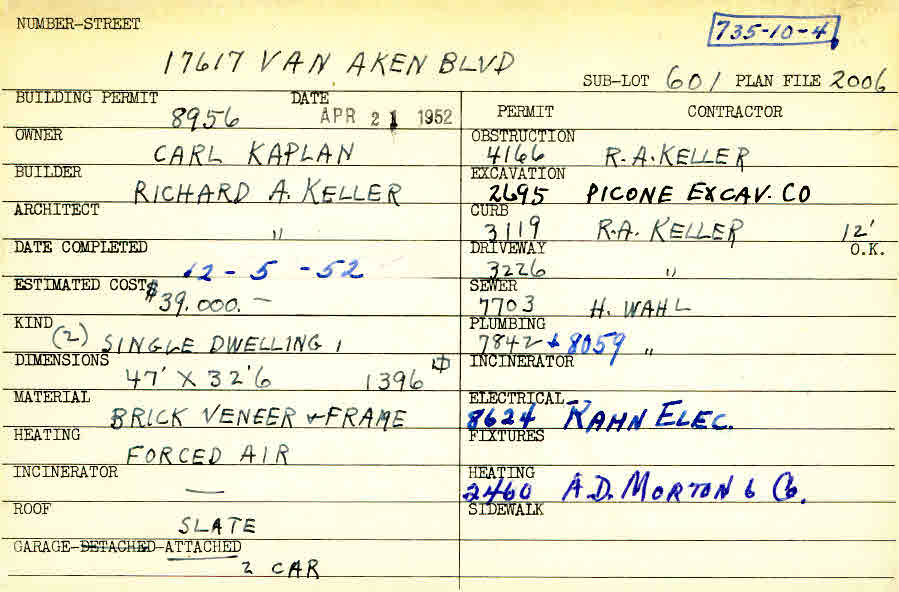 NUMBER-STREET
735-10-4
17617 VAN AKEN BLVD
SUB-LOT 601 PLAN FILE 2006
BUILDING PERMIT 8956 DATE APR 21 1952
OWNER CARL KAPLAN
BUILDER RICHARD A. KELLER
ARCHITECT "
DATE COMPLETED 12-5-52
ESTIMATED COST $39,000.-
KIND (2) SINGLE DWELLING 1
DIMENSIONS 47' X 32'6 1396
MATERIAL BRICK VENEER + FRAME
HEATING FORCED AIR
INCINERATOR —
ROOF SLATE
GARAGE-DETACHED-ATTACHED
2 CAR
PERMIT CONTRACTOR
OBSTRUCTION 4166 R.A. KELLER
EXCAVATION 2695 PICONE EXCAV. CO
CURB 3119 R.A. KELLER 12'
O.K.
DRIVEWAY 3226 "
SEWER 7703 H. WAHL
PLUMBING 7842 + 8059 "
INCINERATOR
ELECTRICAL 8624 KAHN ELEC.
FIXTURES
HEATING 2460 A.D. MORTON & CO.
SIDEWALK